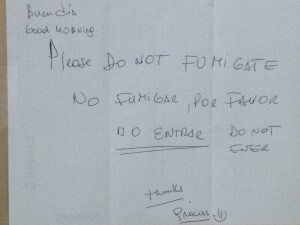 Buen dis
Good MORNING.
Please DO NOT FUMIGATE
NO FUMIGAR, POR FAVOR
NO ENTRAR DO NOT
ENTER
thanks
gracias